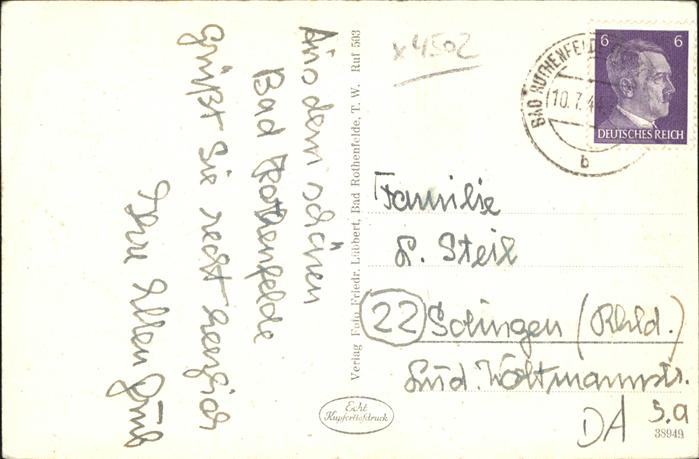 Aus dem schönen
Bad Rothenfelde
grüßt Sie recht herzlich
Ihre Ellen
Verlag Foto Friedr. Lübbert, Bad Rothenfelde, T. W. Ruf 503
x4502
6 6
DEUTSCHES REICH
BAD ROTHENFELDE
10.7.4
b
Familie
Steil
22 Solingen (Rhld.)
Lud. Woltmannstr.
3.a
DA
Echt
Kupfertiefdruck
38949